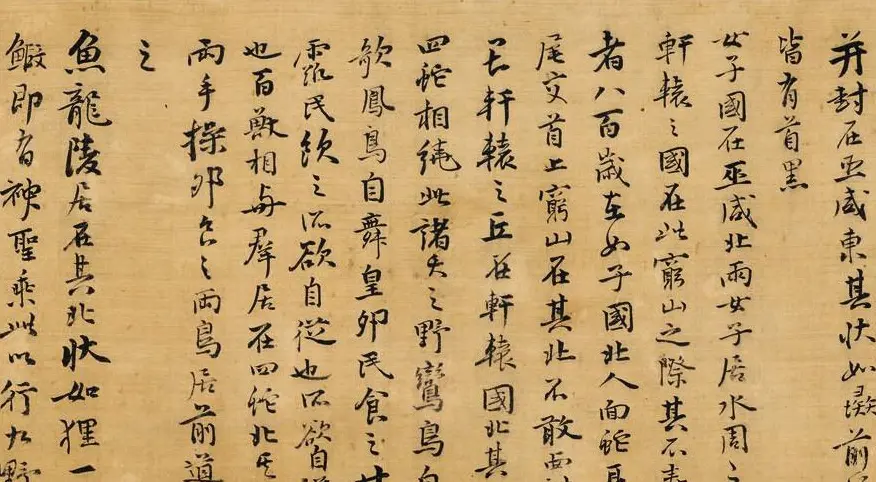 并封在巫咸東其狀如彘前
皆有首黑
女子國在巫咸北兩女子居水周之
軒轅之國在此窮山之際其不壽
者八百歲在女子國北人面蛇身
尾交首上窮山在其北不敢西
畏軒轅之丘在軒轅國北其
四蛇相繞此諸夭之野鸞鳥自
歌鳳鳥自舞皇卵民食之甘
露民飲之所欲自從也所欲自
也百獸相與羣居在四蛇北其
兩手操卵食之兩鳥居前導
之
魚龍陵居在其北狀如狸一
鰕即有神聖乘此以行九野